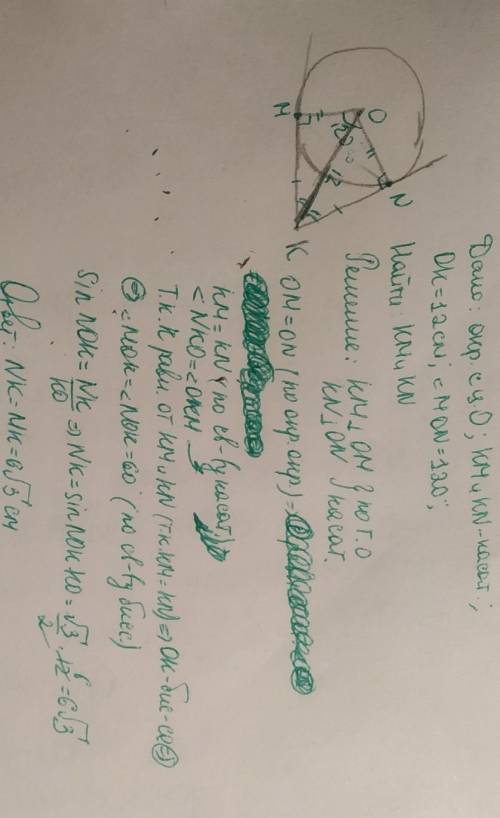 Дано: окр. с ц. О; КМ и КN-касат.;
ОК=12см; <МОN=120°;
Найти: КМ и КN
Решение: КМ⊥ОМ } по т. о
КN⊥ОN } касат.
ОМ=ОN (по окр.)
КМ=КN (по св-ву касат.)
<NKO=<OKM
Т.к. К равн. от КМ и КN (т.к. КМ=КN) => ОК-бис-са =>
=> <МОК=<NОК=60° (по св-ву бисс)
Sin NOK = NK/KO => NK=sin NOK · KO = √3/2 · 12 = 6√3
Ответ: NK=MK=6√3 см
М
О
N
К